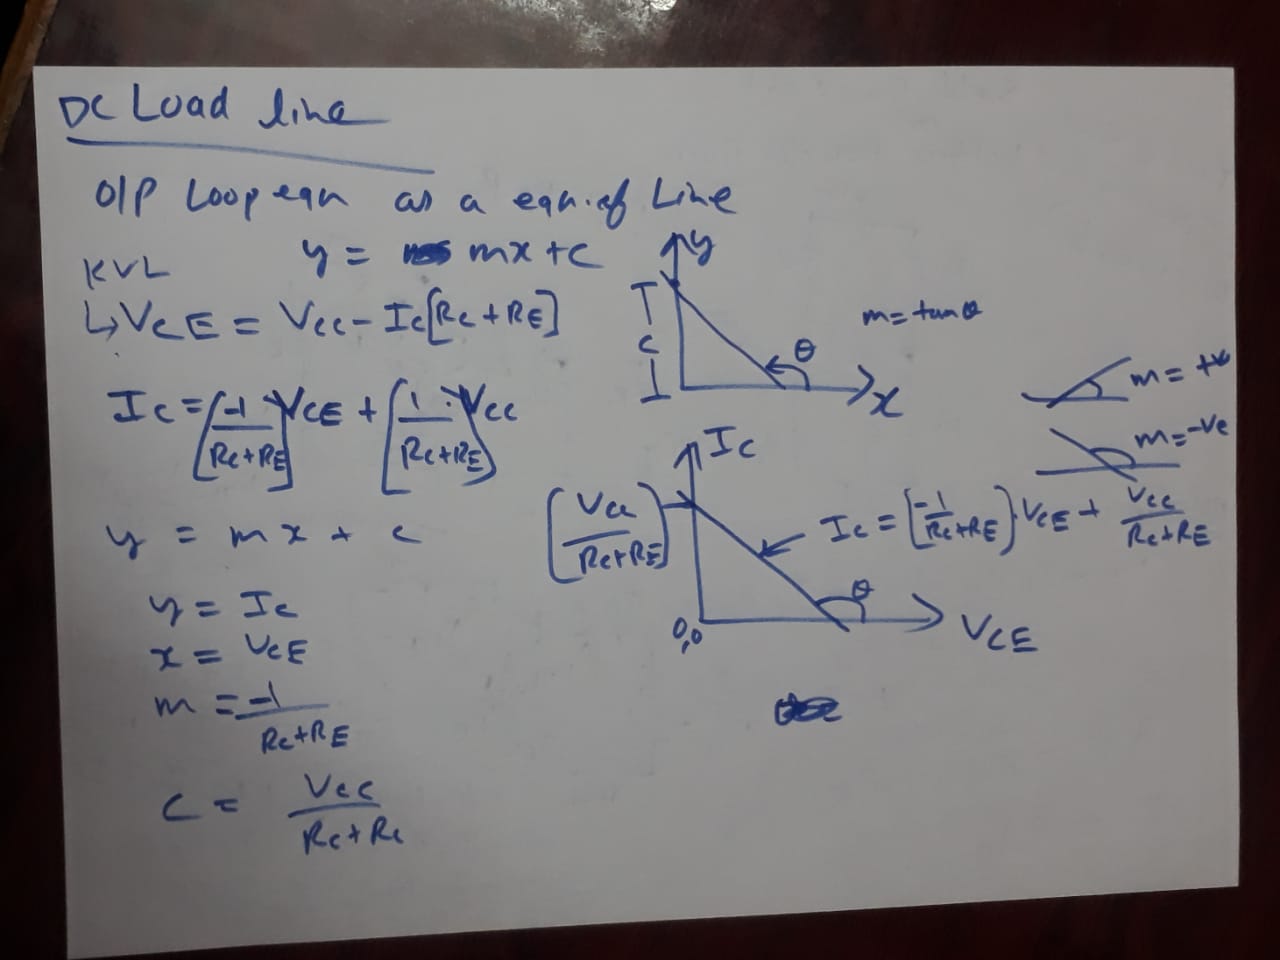 DC Load line
O/P Loop eqn as a eqn. of Line
y = mx + c
KVL
↳ VCE = VCC - IC[RC + RE]
IC = (-1/(RC+RE))·VCE + (1/(RC+RE))·VCC
y = m x + c
y = IC
x = VCE
m = -1/(RC+RE)
C = VCC/(RC+RC)
y
C
θ
x
m = tanθ
m = +ve
m = -ve
IC
(VCC/(RC+RE))
IC = (-1/(RC+RE))·VCE + VCC/(RC+RE)
θ
0,0
VCE